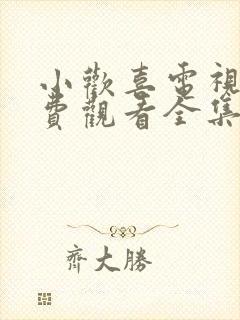 小歡喜電視
費觀看全集
齊大勝